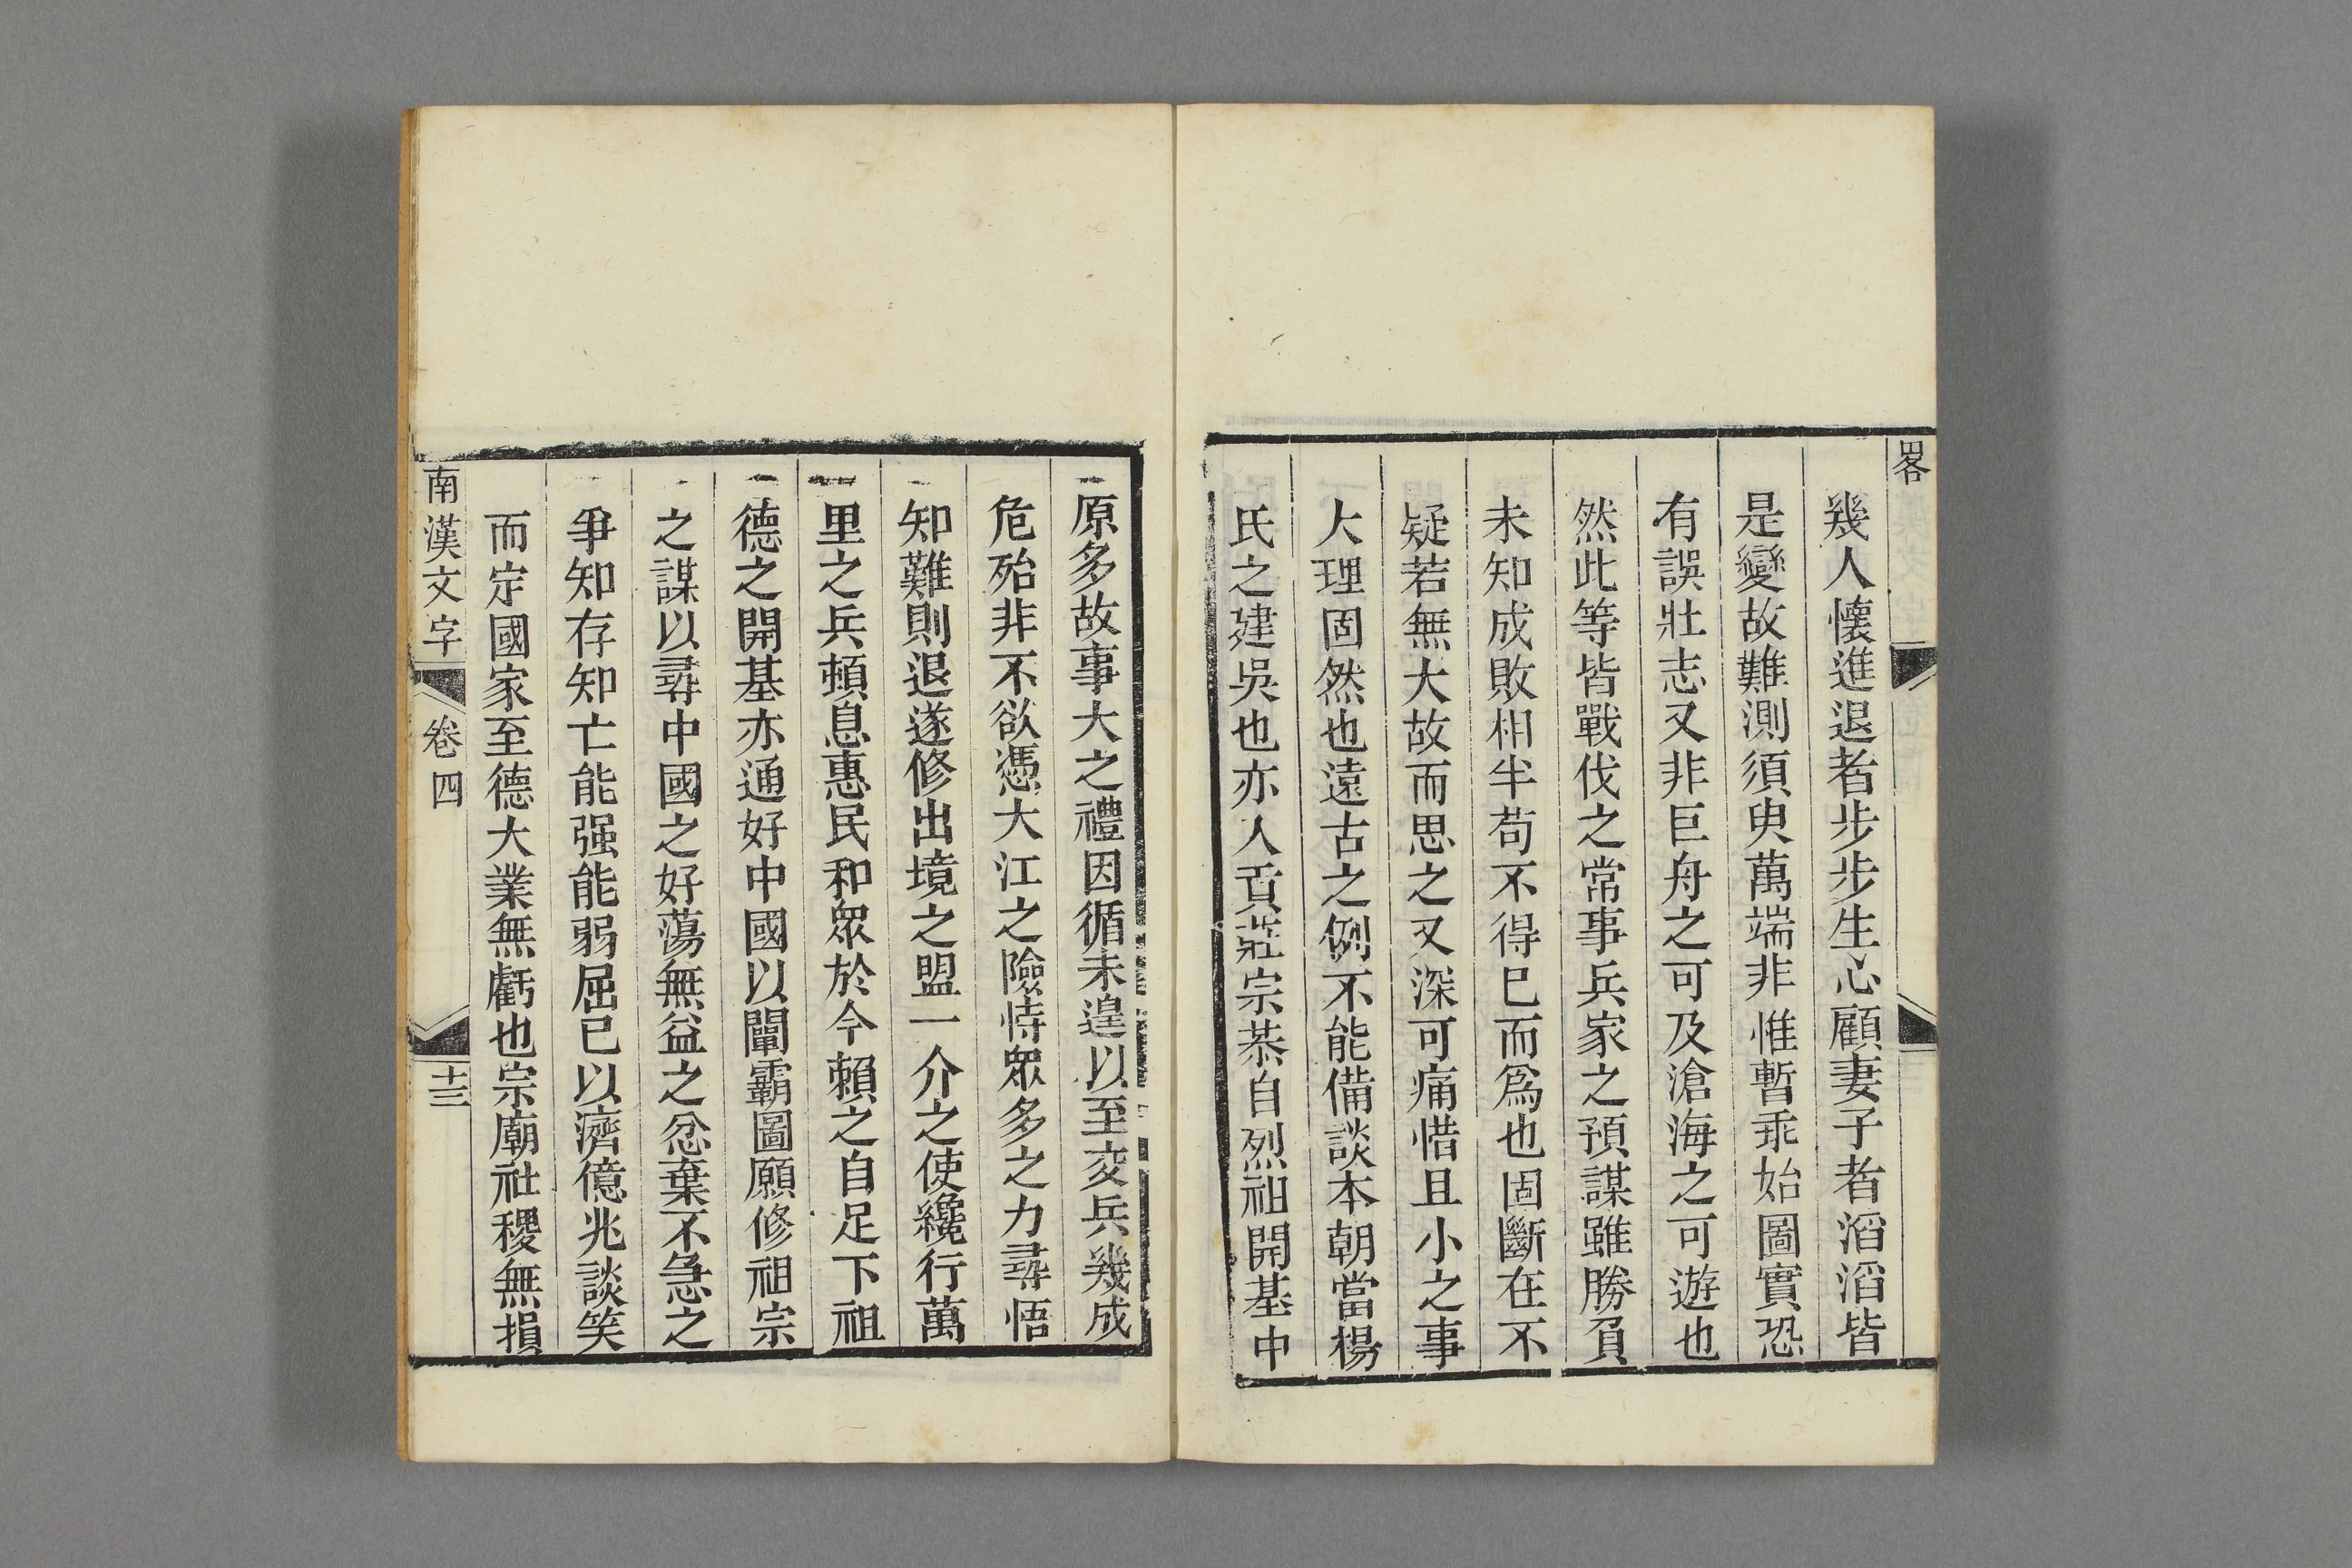 畧
幾人懷進退者步步生心顧妻子者滔滔皆
是變故難測須臾萬端非惟暫乖始圖實恐
有誤壯志又非巨舟之可及滄海之可遊也
然此等皆戰伐之常事兵家之預謀雖勝負
未知成敗相半苟不得已而爲也固斷在不
疑若無大故而思之又深可痛惜且小之事
大理固然也遠古之例不能備談本朝當楊
氏之建吳也亦入貢莊宗恭自烈祖開基中
原多故事大之禮因循未遑以至交兵幾成
危殆非不欲憑大江之險恃眾多之力尋悟
知難則退遂修出境之盟一介之使纔行萬
里之兵頓息惠民和眾於今賴之自足下祖
德之開基亦通好中國以闡霸圖願修祖宗
之謀以尋中國之好蕩無益之忿棄不急之
爭知存知亡能强能弱屈已以濟億兆談笑
而定國家至德大業無虧也宗廟社稷無損
南漢文字 卷四 十三